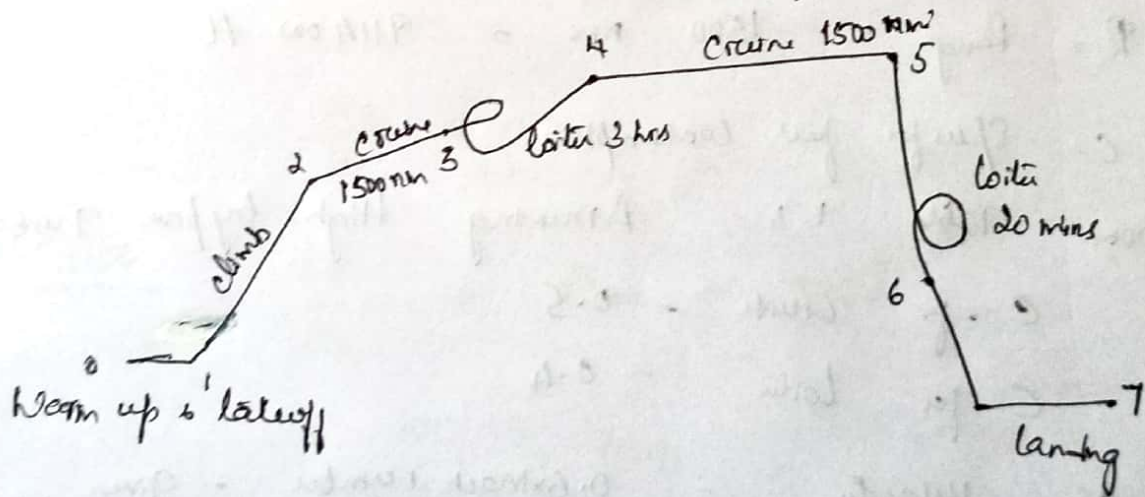 4
Cruise 1500 nm
5
2
Cruise
3
1500 nm
loiter 3 hrs
climb
loiter
20 mins
6
0
1
Warm up & takeoff
7
landing